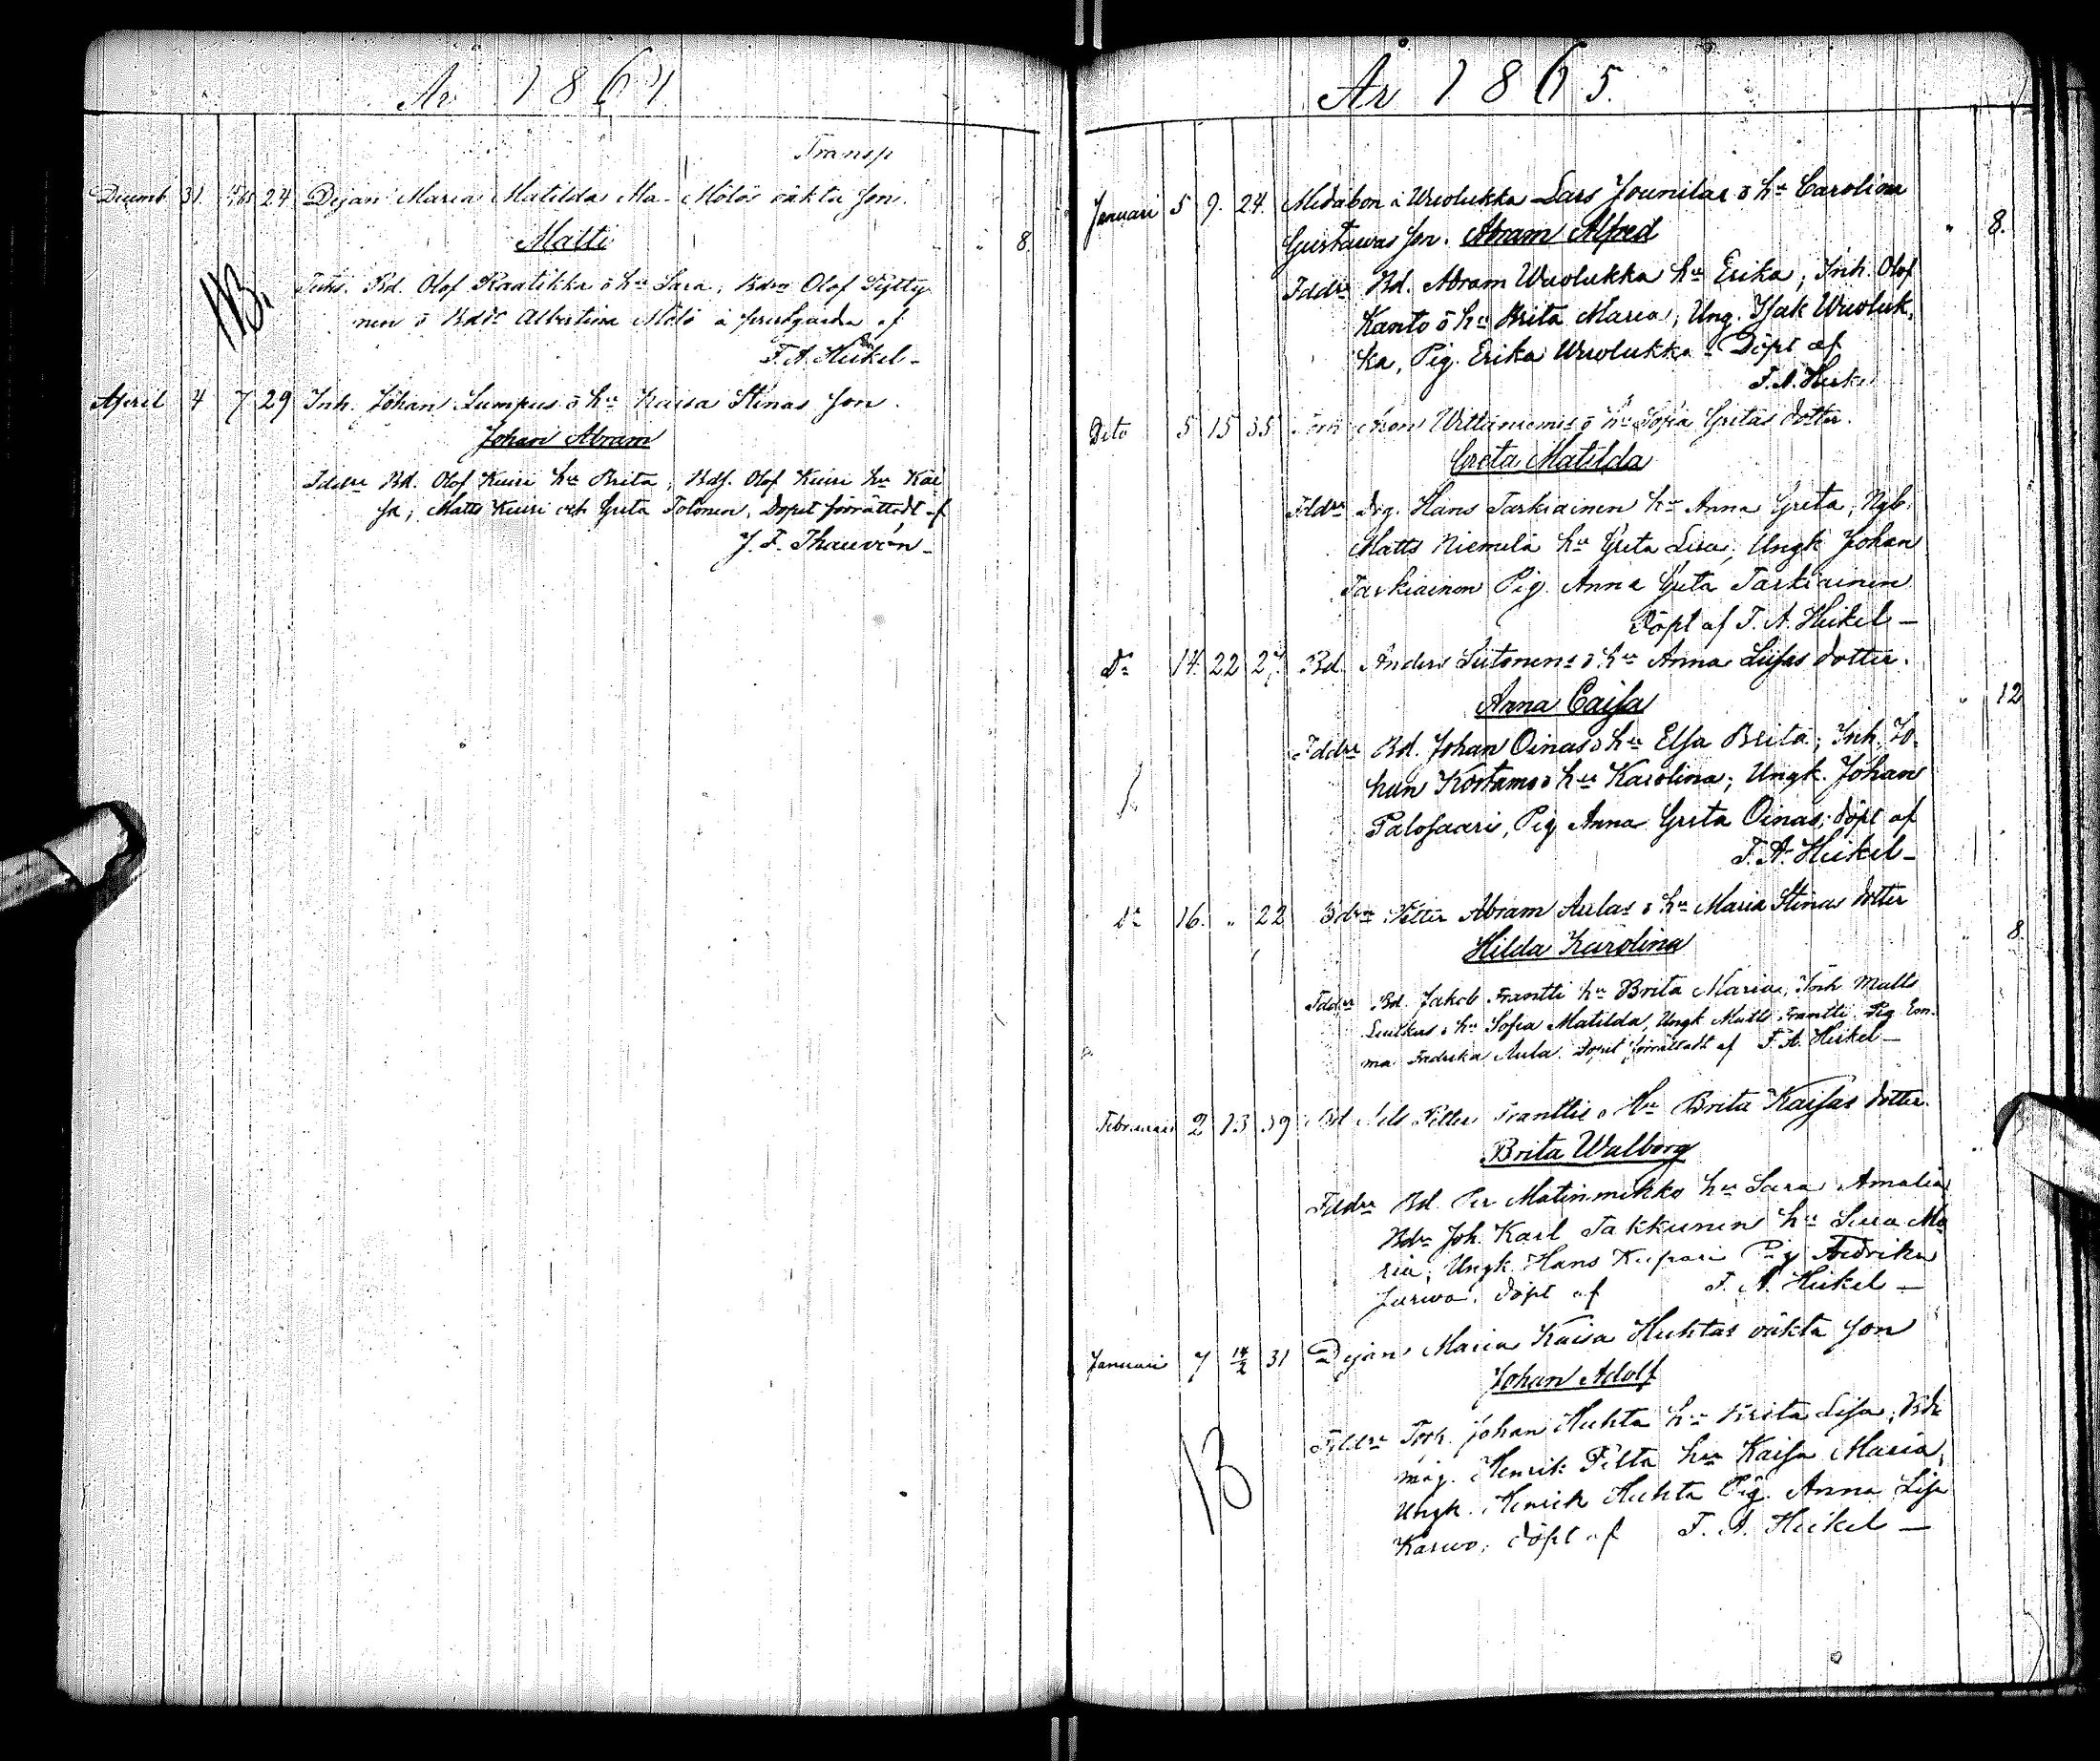 År 1864
Transp
Decemb 31 24 Pigan Maria Matilda Mölös oäkta Son.
Matti " 8
NB.
Bd. Olof Raatikka o hu Sara; Bdsn Olof Pytty
nen o Bddr Albertina Mölö å prestgården af
F. A. Heikel
April 4 7 29 Inh. Johan Lumpus o hu Kaisa Stinas Son.
Johan Abram
Fddre Bd. Olof Kuiri hu Brita, Bds. Olof Kuiri hu Kai
sa; Matts Kuiri och Greta Tolonen, Dopet förrättadt af
J. F. Thauvón
År 1865.
Januari 5 9. 24. Lars Jounilas o hu Carolina
Gustavas Son. Abram Alfred " 8.
Fddre Bd. Abram Wuolukka hu Erika; Inh. Olof
Kanto o hu Brita Maria; Ung. Isak Wuoluk,
ka, Pig. Erika Wuolukka - Döpt af
F. A. Heikel
Dito 5 15 35 o hu Sofia Gretas dotter.
Greta Matilda
Fddre Hans Tarkiainen hu Anna Greta; Ngb.
Matts Niemelä hu Greta Lisa; Ungk Johan
Tarkiainen Pig. Anna Greta Tarkiainen
Döpt af F. A. Heikel
Do 14. 22 27. Bd. Anders Lutonens o hu Anna Lisas dotter.
Anna Caisa " 12
Fddre Bd. Johan Oinas o hu Elsa Brita; Inh. Jo-
han Kostamo o hu Karolina; Ungk. Johan
Palosaari, Pig Anna Greta Oinas; döpt af
F. A. Heikel
Do 16. " 22 Petter Abram Aulas o hu Maria Stinas dotter
Hilda Karolina " 8.
Fddre Bd. Jakob Frantti hu Brita Maria; Inh Matts
o hu Sofia Matilda, Ungk Matts Frantti Pig Em-
ma Fredrika Aula. Dopet förrättadt af F. A. Heikel
Februari 2 13 39 Bd Nils Petter Franttis o Hu Brita Kaisas dotter.
Brita Walborg
Fddre Bd. Per Matinmikko hu Sara Amalia
Bdsn Joh. Karl Takkunen hu Ma
ria; Ungk. Hans Kupari Pig Fredrika
Jurwa. döpt af F. A. Heikel
Januari 7 14/2 31 Pigan Maria Kaisa Huhtas oäkta Son
Johan Adolf
Fddre Johan Huhta hu Brita Lisa;
måg. Henrik Pelta hu Kaisa Maria,
Ungk. Henrik Huhta Pig. Anna Lisa
Karwo; döpt af F. A. Heikel